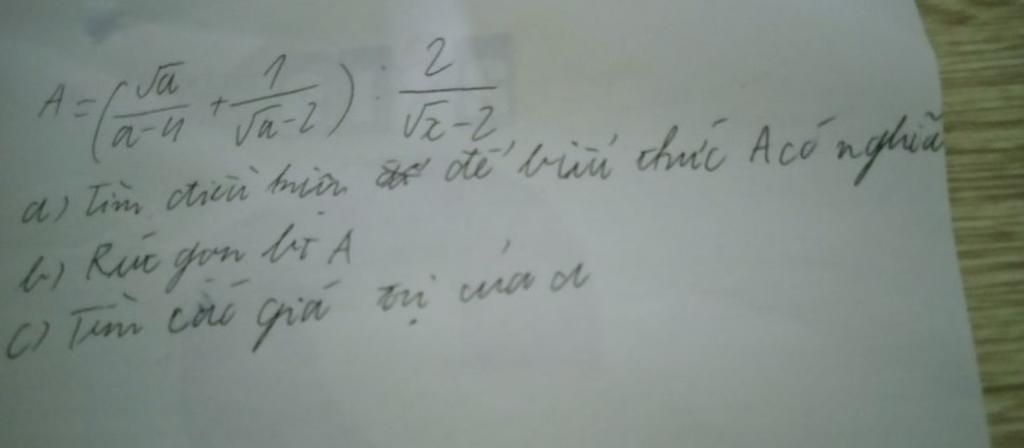 A = (√a/(a-4) + 1/(√a-2)) : 2/(√x-2)
a) Tìm điều kiện để biểu thức A có nghĩa
b) Rút gọn bt A
c) Tìm các giá trị của a